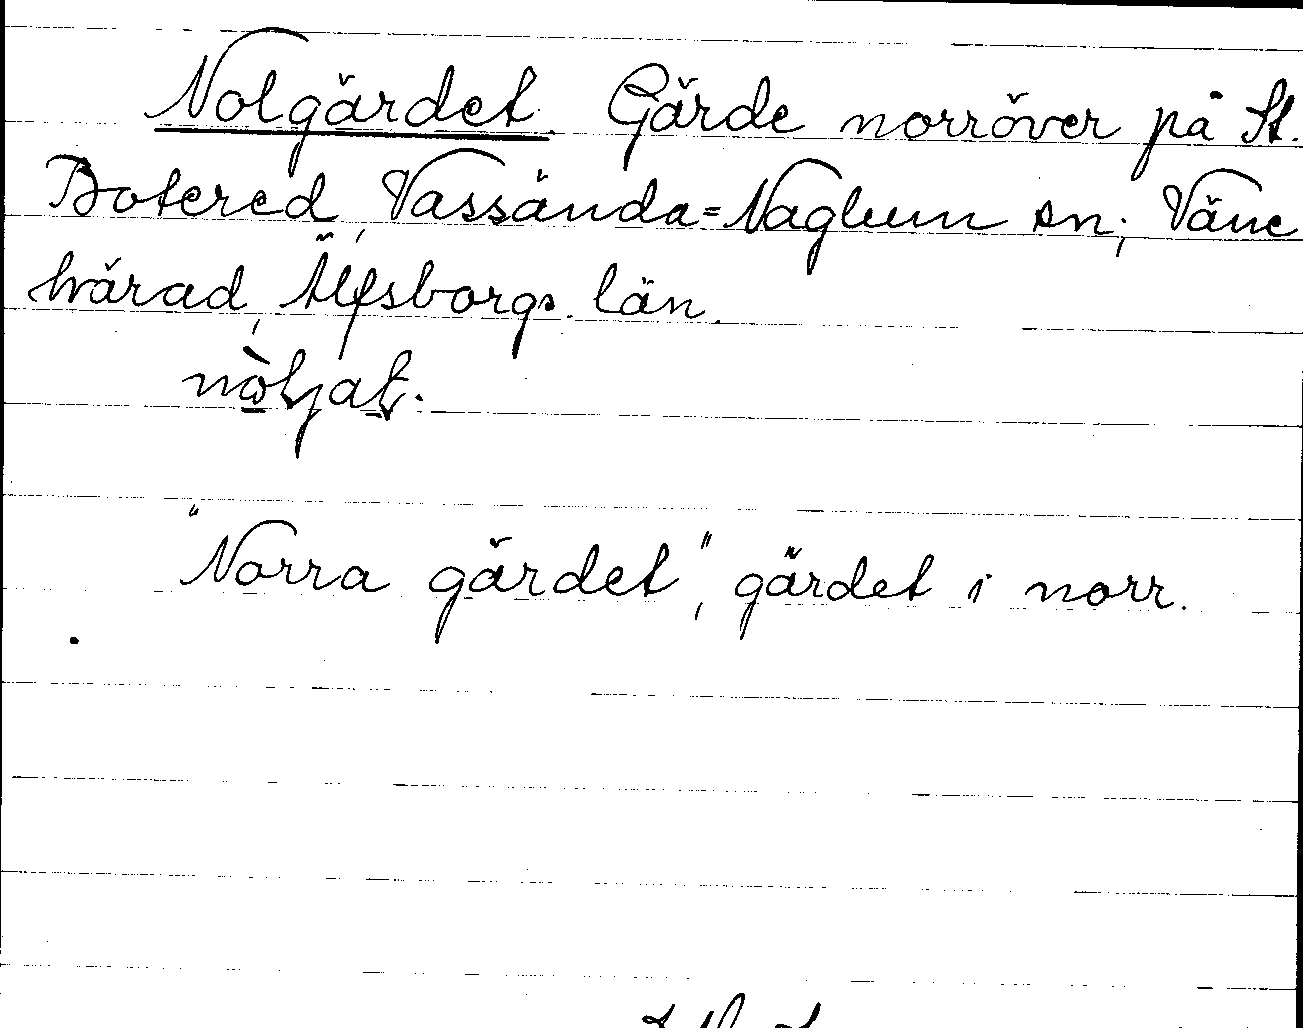 Nolgärdet. Gärde norröver på St.
Botered, Vassända=Naglum sn; Väne
härad, Älfsborgs län.
"Norra gärdet", gärdet i norr.